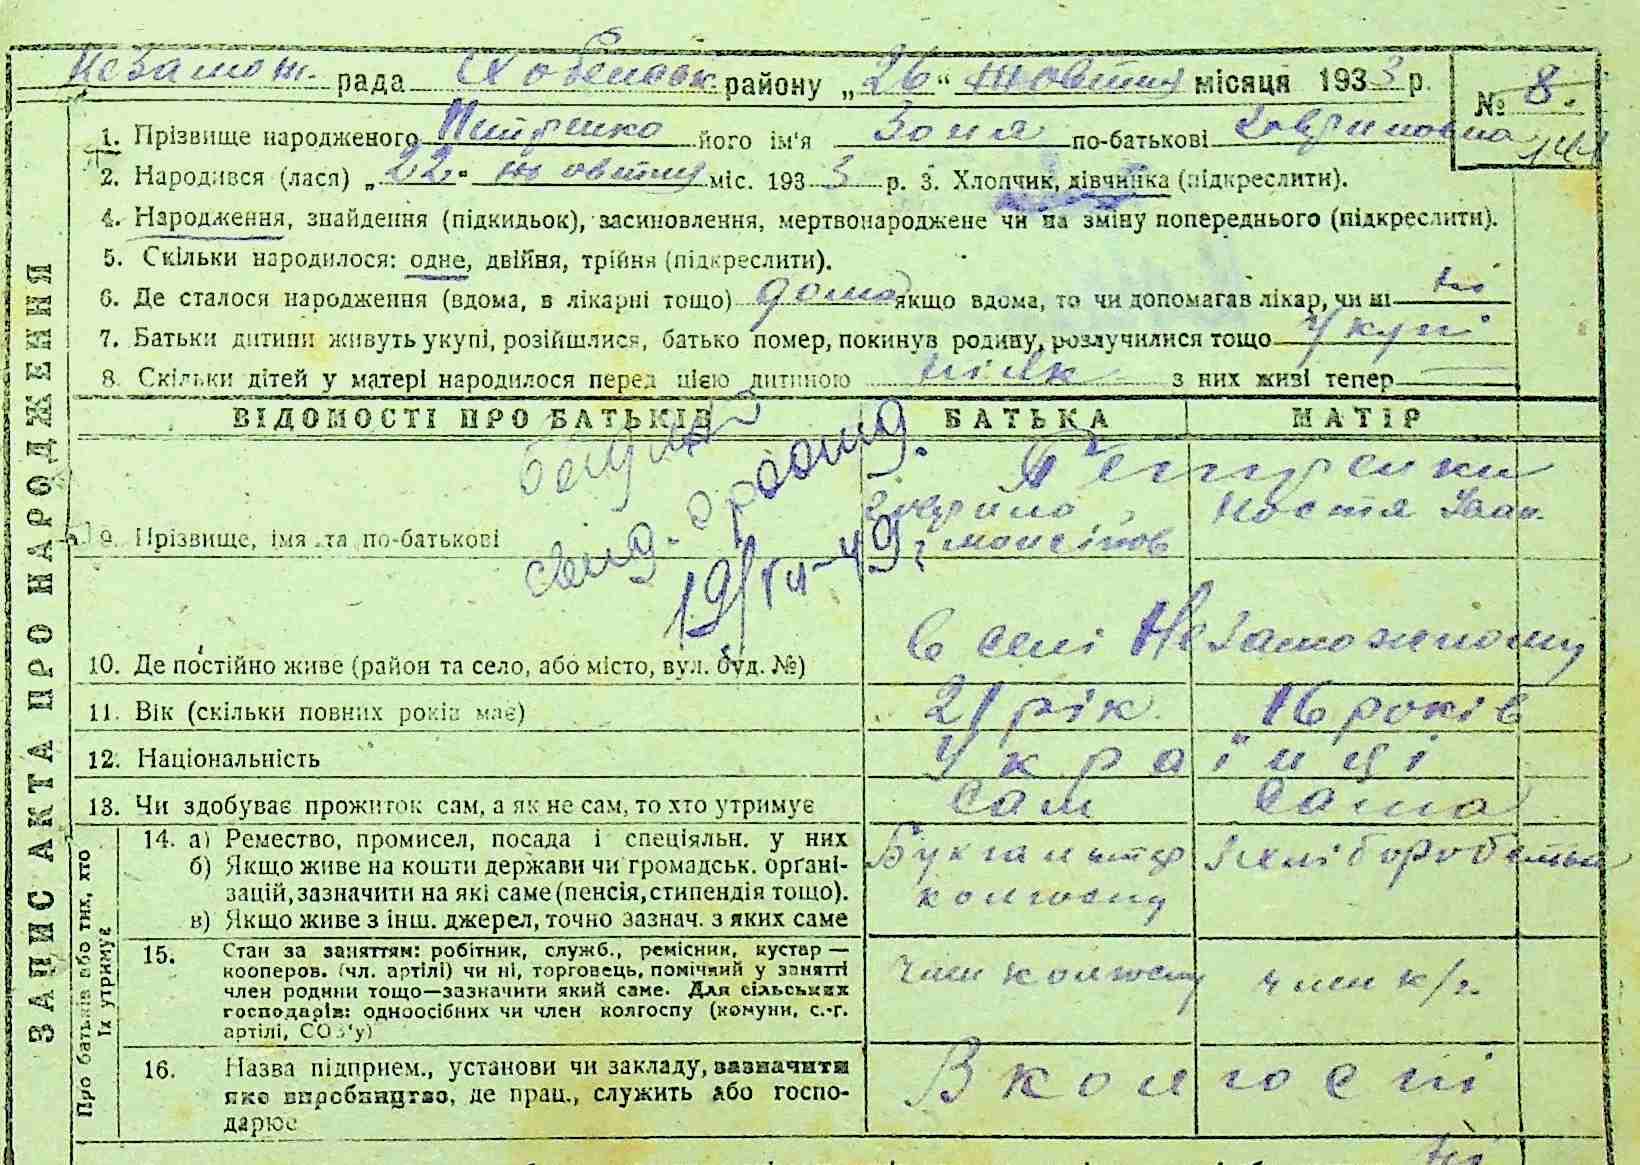 Незамож. рада района району „26“ жовтня місяця 1933 р.
№ 8.
144
1. Прізвище народженого Питренко його ім'я Зоня по-батькові Гавриловна
2. Народився (лася) „22“ жовтня міс. 1933 р. 3. Хлопчик, дівчинка (підкреслити).
4. Народження, знайдення (підкидьок), засиновлення, мертвонароджене чи на зміну попереднього (підкреслити).
5. Скільки народилося: одне, двійня, трійня (підкреслити).
6. Де сталося народження (вдома, в лікарні тощо) дома якщо вдома, то чи допомагав лікар, чи ні ні
7. Батьки дитини живуть укупі, розійшлися, батько помер, покинув родину, розлучилися тощо Укупі
8. Скільки дітей у матері народилося перед цією дитиною з них живі тепер
ЗАПИС АКТА ПРО НАРОДЖЕННЯ
ВІДОМОСТІ ПРО БАТЬКІВ БАТЬКА МАТІР
свид. о рожд.
19/
9. Прізвище, імя та по-батькові Петренки
Гаврило Настя Іван.
10. Де постійно живе (район та село, або місто, вул. буд. №) в селі Незаможному
11. Вік (скільки повних років має) 21 рік 16 років
12. Національність Українці
13. Чи здобуває прожиток сам, а як не сам, то хто утримує сам сама
Про батьків або тих, хто їх утримує
14. а) Ремество, промисел, посада і спеціяльн. у них Бухгальтер хліборобство
б) Якщо живе на кошти держави чи громадськ. органі- колгоспу
зацій, зазначити на які саме (пенсія, стипендія тощо).
в) Якщо живе з інш. джерел, точно зазнач. з яких саме
15. Стан за заняттям: робітник, служб., ремісник, кустар —
кооперов. (чл. артілі) чи ні, торговець, помічний у занятті член колгоспу член к/г.
член родини тощо—зазначити який саме. Для сільських
господарів: одноосібних чи член колгоспу (комуни, с.-г.
артілі, СОЗ'у)
16. Назва підприєм., установи чи закладу, зазначити В колгоспі
яке виробництво, де прац., служить або госпо-
дарює